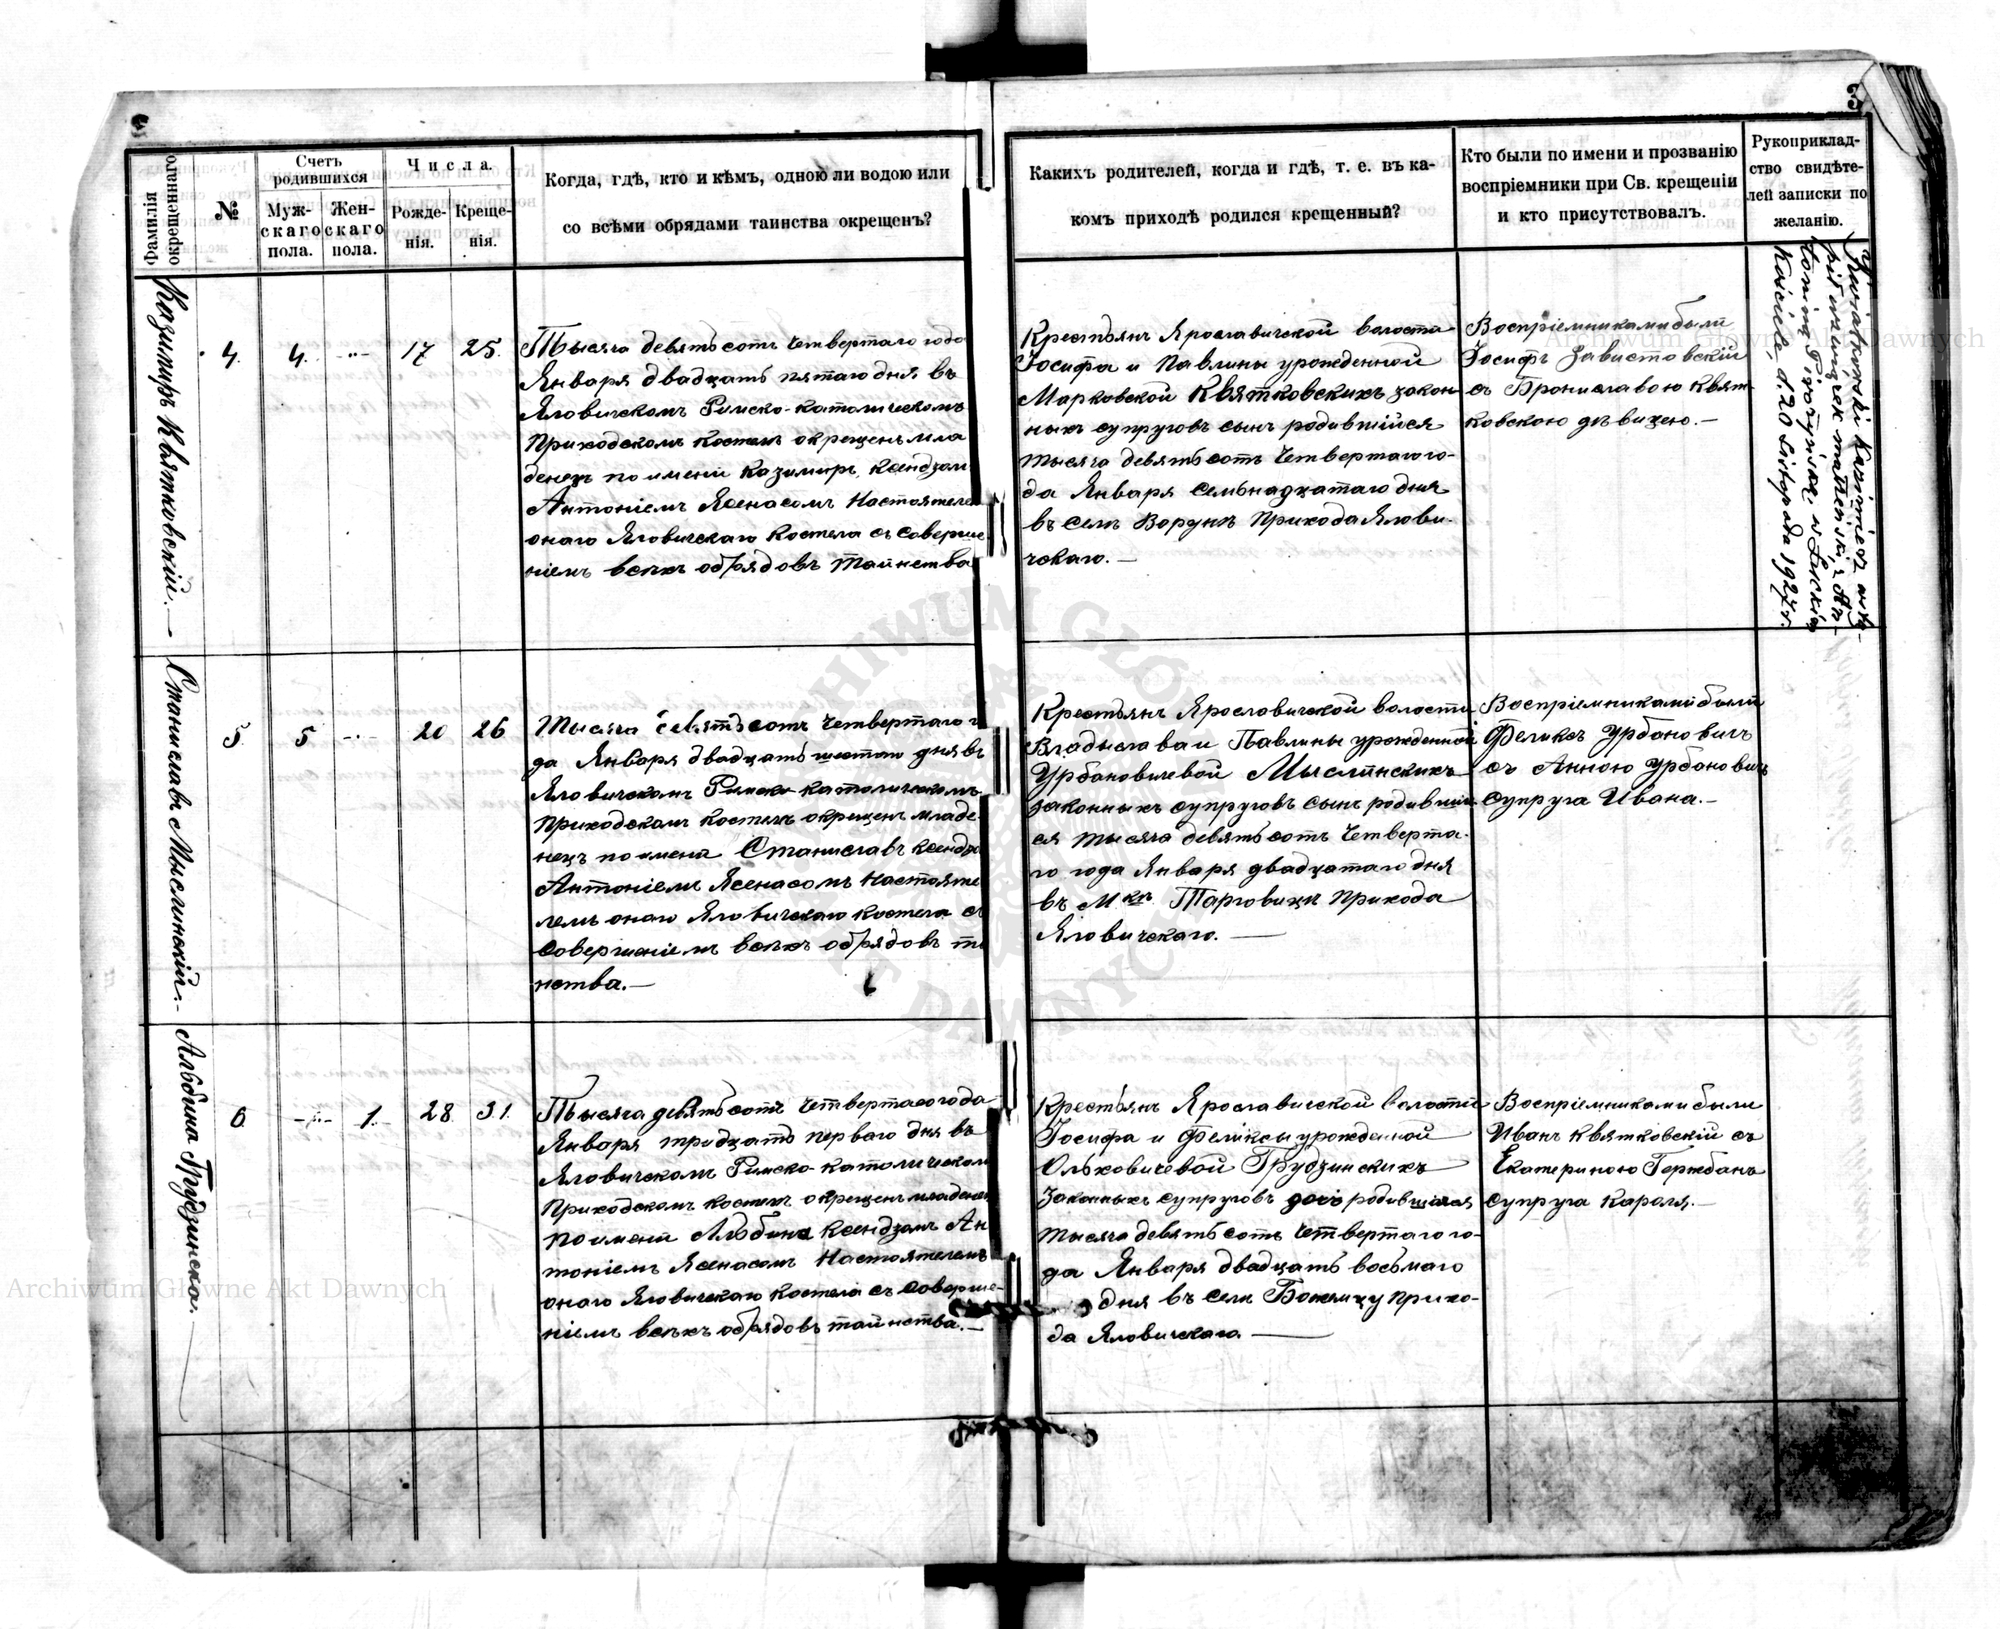 3
Фамилія окрещеннаго.
№
Счетъ родившихся
Мужскаго пола.
Женскаго пола.
Числа.
Рожденія.
Крещенія.
Когда, гдѣ, кто и кѣмъ, одною ли водою или
со всѣми обрядами таинства окрещенъ?
Какихъ родителей, когда и гдѣ, т. е. въ ка-
комъ приходѣ родился крещенный?
Кто были по имени и прозванію
воспріемники при Св. крещеніи
и кто присутствовалъ.
Рукоприклад-
ство свидѣте-
лей записки по
желанію.
Казимиръ Квятковскій.—
4. 4. -..- 17 25.
Тысяча девятьсотъ четвертаго года
Января двадцать пятаго дня въ
Яловичскомъ Римско-католическомъ
приходскомъ костелѣ окрещенъ мла
денецъ по имени Казимиръ, ксендзом
Антоніемъ Ясенасомъ Настоятеле
онаго Яловичскаго костела съ соверше
ніемъ всѣхъ обрядовъ таинства
Крестьянъ Ярославичской волости
Іосифа и Павлины урожденной
Марковской Квятковскихъ закон
ныхъ супруговъ сынъ родившійся
тысяча девятьсотъ четвертаго го-
да Января семьнадцатаго дня
въ селѣ Ворунѣ Прихода Ялови-
чскаго.—
Воспріемниками были
Іосифъ Завистовскій
съ Брониславою Квят
ковскою дѣвицею.—
Kwiatkowski Kazimierz
związek małżeński z An-
toniną
Kościele, d. 20 Listopada 1927 r.
Станиславъ Мыслинскій.—
5. 5 -..- 20 26
Тысяча девятьсотъ четвертаго г
да Января двадцать шестаго дня въ
Яловичскомъ Римско-католическомъ
приходскомъ костелѣ окрещенъ младе
нецъ по имени Станиславъ ксендзо
Антоніемъ Ясенасомъ Настояте
лемъ онаго Яловичскаго костела съ
совершеніемъ всѣхъ обрядовъ та
инства.—
Крестьянъ Ярославичской волости
Владыслава и Павлины урожденной
Урбановичевой Мыслинскихъ
законныхъ супруговъ сынъ родивший
ся тысяча девятьсотъ четверта-
го года Января двадцатаго дня
въ Мкѣ Торговицѣ Прихода
Яловичскаго.—
Воспріемниками были
Феликсъ Урбановичъ
съ Анною Урбановичъ
супруга Ивана.—
Альбина Грудзинска.
6 -..- 1. 28 31.
Тысяча девятьсотъ четвертаго года
Января тридцать перваго дня въ
Яловичскомъ Римско-католическом
приходскомъ костелѣ окрещенъ младенец
по имени Альбина ксендзомъ Ан
тоніемъ Ясенасомъ Настоятелемъ
онаго Яловичскаго костела съ соверше-
ніемъ всѣхъ обрядовъ таинства.—
Крестьянъ Ярославичской волости
Іосифа и Феликсы урожденной
Ольховичевой Грудзинскихъ
законныхъ супруговъ дочь родившаяся
тысяча девятьсотъ четвертаго го-
да Января двадцать восьмаго
дня въ селѣ Прихо-
да Яловичскаго.—
Воспріемниками были
Иванъ Квятковскій съ
Екатериною Гержбанъ
супруга Кароля.—
Archiwum Główne Akt Dawnych
Archiwum Główne Akt Dawnych
ARCHIWUM GŁÓWNE AKT DAWNYCH